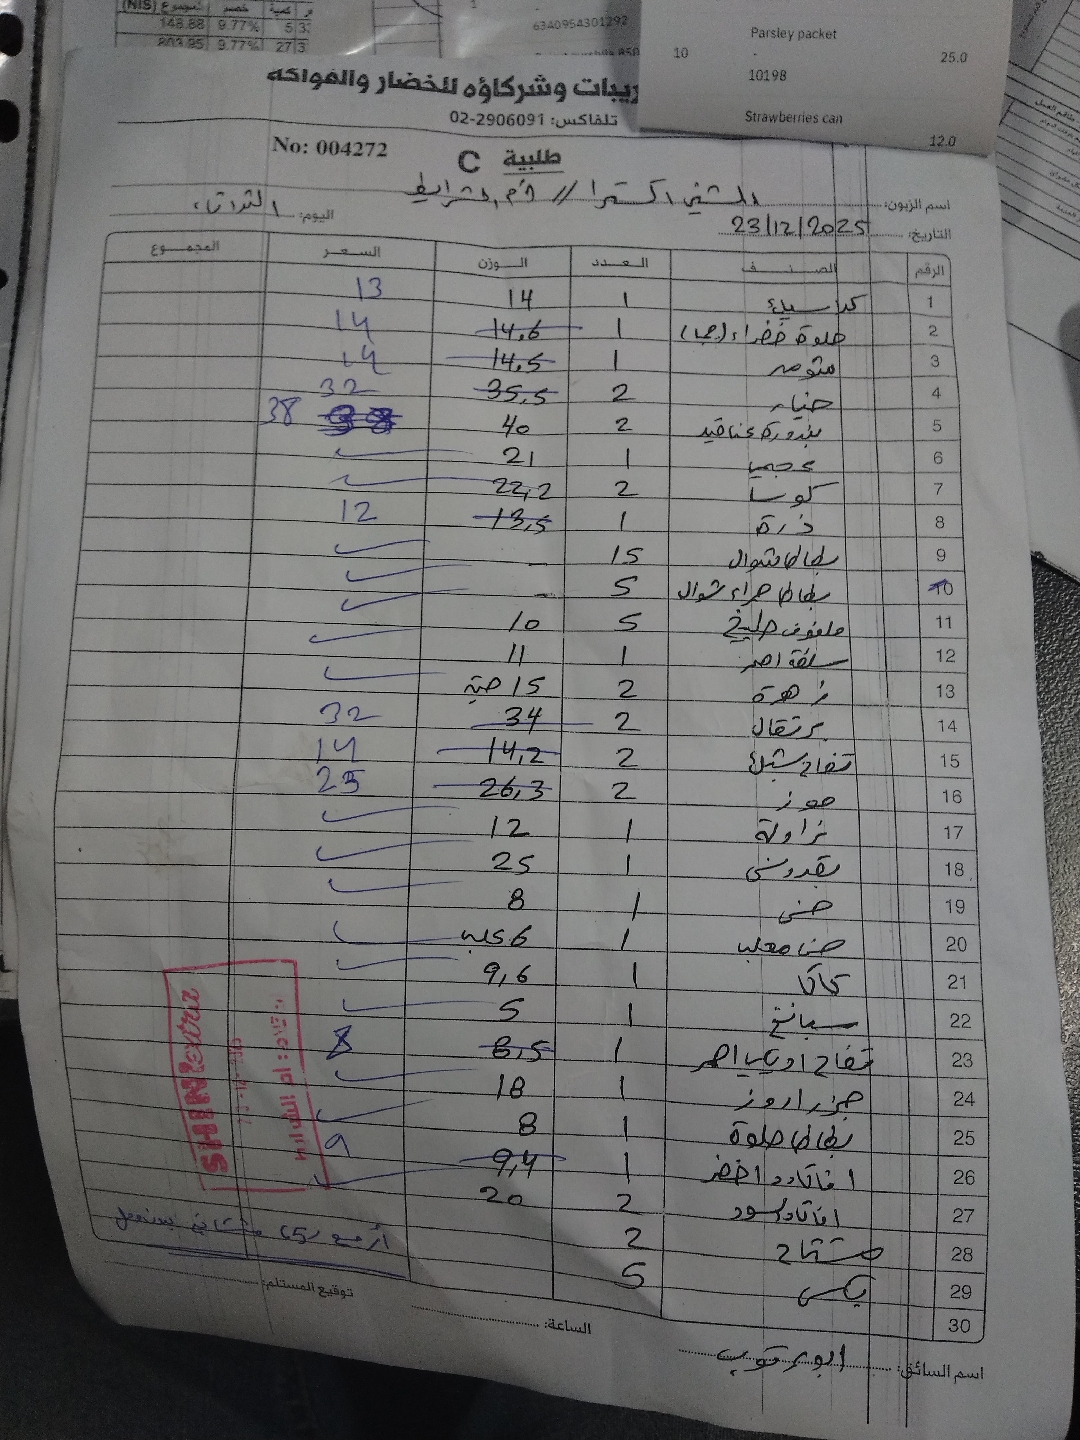 المجموع (NIS)
148.88 9.77% 5
803.95 9.77% 27
6340954301292
Parsley packet
10 - 25.0
10198
Strawberries can
12.0
وشركاؤه للخضار والفواكه
تلفاكس: 02-2906091
No: 004272 طلبية C
اسم الزبون: الشني اكسترا // ام الشرايط
التاريخ: 23/12/2025 اليوم: الثلاثاء
الرقم الصنف العدد الوزن السعر المجموع
1 1 14 13
2 حلوة خضراء 1 14,6 14
3 1 14,5 14
4 خيار 2 35,5 32
5 بندورة عناقيد 2 40 38
6 عجمي 1 21
7 كوسا 2 22,2
8 ذرة 1 13,5 12
9 بطاطا شوال 15 -
10 بطاطا حمراء شوال 5 -
11 ملفوف 5 10
12 1 11
13 زهرة 2 15 حبة
14 برتقال 2 34 32
15 تفاح 2 14,2 14
16 موز 2 26,3 25
17 فراولة 1 12
18 بقدونس 1 25
19 خس 1 8
20 خس معلب 1 6 علب
21 كاكا 1 9,6
22 سبانخ 1 5
23 تفاح احمر 1 8,5 8
24 جزر اروز 1 18
25 بطاطا حلوة 1 8
26 افوكادو اخضر 1 9,4 9
27 افوكادو اسود 2 20
28 مشتاح 2
29 بكس 5
30
SHINI extra
توقيع المستلم:
الساعة:
اسم السائق: